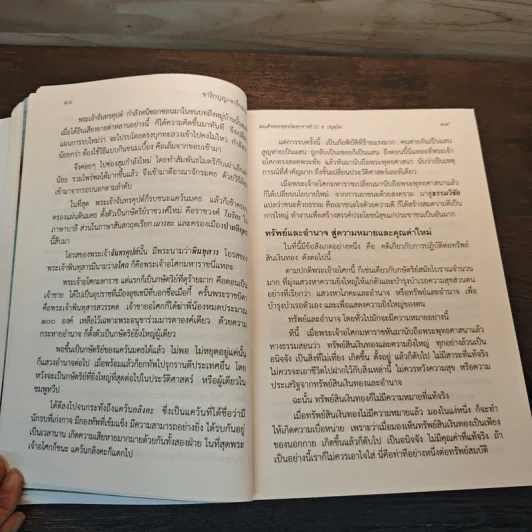 ๑๘ จาริกบุญ-จารึกธรรม
พระเจ้าจันทรคุปต์ กำลังหนีซอกซอนมาในชนบทถึงหมู่บ้านนี้
เมื่อได้ยินเสียงยายด่าหลานอย่างนี้ ก็ได้ความคิดขึ้นมาทันที จึงเปลี่ยน
แผนการรบใหม่ว่า จะไปรบโดยตรงบุกทะลวงเข้าไปคงไม่ไหว กำลังเรา
น้อยกว่า ต้องใช้วิธีกินแบบกินขนมเบื้อง คือเล็มจากขอบเข้ามา
จึงค่อยๆ ไปซ่องสุมกำลังใหม่ โดยทำสัมพันธไมตรีกับเผ่าเล็กเผ่า
น้อย รวมไพร่พลได้มากขึ้นแล้ว จึงเข้ามาตีอาณาจักรมคธ ด้วยวิธี
เข้ามาจากรอบนอกตามลำดับ
ในที่สุด พระเจ้าจันทรคุปต์ก็รบชนะแคว้นมคธ แล้วก็เข้าครอง
ครองแผ่นดินมคธ ตั้งตัวเป็นกษัตริย์วงศ์ใหม่ คือราชวงศ์ โมริยะ ใน
ภาษาบาลี ส่วนในภาษาสันสกฤตเรียก เมารยะ และครองเมืองปาตลีบุตร
นี้สืบมา
โอรสของพระเจ้าจันทรคุปต์นั้น มีพระนามว่าพินทุสาร โอรสของ
พระเจ้าพินทุสารมีนามว่าอโศก ก็คือพระเจ้าอโศกมหาราชนี่แหละ
พระเจ้าอโศกมหาราช แต่แรกก็เป็นกษัตริย์ที่ดุร้ายมาก คือตอนเป็น
เจ้าชาย ได้ไปเป็นอุปราชที่เมืองอุชเชนีที่บอกชื่อเมื่อกี้ ครั้นพระราชบิดา
คือพระเจ้าพินทุสารสวรรคต เจ้าชายอโศกก็ได้ฆ่าพี่น้องหมดประมาณ
๑๐๐ องค์ เหลือไว้เฉพาะพระอนุชาร่วมมารดาองค์เดียว ด้วยความ
กระหายอำนาจ ก็ตั้งตัวเป็นกษัตริย์ยิ่งใหญ่ผู้เดียว
พอขึ้นเป็นกษัตริย์ของแคว้นมคธได้แล้ว ไม่พอ ไม่หยุดอยู่แค่นั้น
ก็แสวงอำนาจต่อไป เมื่อพร้อมแล้วก็ยกทัพไปรุกรานตีประเทศอื่น โดย
หวังจะเป็นกษัตริย์ที่ยิ่งใหญ่ที่สุดต่อไปในประวัติศาสตร์ หรือผู้เดียวใน
ชมพูทวีป
ได้ตีลงไปจนกระทั่งถึงแคว้นกลิงคะ ซึ่งเป็นแคว้นที่ได้ชื่อว่ามี
นักรบที่เก่งกาจ มีกองทัพที่เข้มแข็ง มีความสามารถอย่างยิ่ง ได้รบกันอยู่
เป็นเวลานาน เกิดความเสียหายมากมายด้วยกันทั้งสองฝ่าย ในที่สุดพระ
เจ้าอโศกก็ชนะ แคว้นกลิงคะก็แตกไป
สมเด็จพระพุทธโฆษาจารย์ (ป. อ. ปยุตฺโต) ๑๙
แต่การรบครั้งนี้ เป็นภัยพิบัติที่ร้ายแรงมาก คนตายกันเป็นแสน
สูญหายเป็นแสน ถูกจับเป็นเชลยก็เป็นแสน ถึงตอนนี้นี่แหละที่พระเจ้า
อโศกทรงสลดพระทัย แล้วหันมานับถือพระพุทธศาสนา นับว่าเป็นเหตุ
การณ์ที่สำคัญมาก ถึงขั้นเปลี่ยนประวัติศาสตร์เลยทีเดียว
เมื่อพระเจ้าอโศกมหาราชเปลี่ยนมานับถือพระพุทธศาสนาแล้ว
ก็ได้เปลี่ยนนโยบายใหม่ จากการเอาชนะด้วยสงคราม มาสู่ธรรมวิชัย
แปลว่าชนะด้วยธรรม คือเอาชนะใจด้วยความดี ก็ได้สร้างสมความดีเป็น
การใหญ่ ทำงานเพื่อสร้างสรรค์ประโยชน์สุขแก่ประชาชนเป็นอันมาก
ทรัพย์และอำนาจ สู่ความหมายและคุณค่าใหม่
ในที่นี้มีข้อสังเกตอย่างหนึ่ง คือ คติเกี่ยวกับการปฏิบัติต่อทรัพย์
สินเงินทอง ดังต่อไปนี้
ตามปกติพระเจ้าอโศกนี้ ก็เช่นเดียวกับกษัตริย์สมัยโบราณจำนวน
มาก ที่มุ่งแสวงหาความยิ่งใหญ่ให้แก่ตัวและบำรุงบำเรอความสุขส่วนตน
อย่างที่เรียกว่า แสวงหาโภคะและอำนาจ หรือทรัพย์และอำนาจ เพื่อ
บำรุงบำเรอตัวเอง และเพื่อแสดงความยิ่งใหญ่ของตน
ทรัพย์และอำนาจ โดยทั่วไปมักจะมีความหมายอย่างนี้
ทีนี้ เมื่อพระเจ้าอโศกมหาราชหันมานับถือพระพุทธศาสนาแล้ว
ทางธรรมสอนว่า ทรัพย์สินเงินทองและความยิ่งใหญ่ ทุกอย่างล้วนเป็น
อนิจจัง เป็นสิ่งที่ไม่เที่ยง เกิดขึ้น ตั้งอยู่ แล้วก็ดับไป ไม่มีสาระที่แท้จริง
ไม่ควรจะเอาชีวิตไปฝากไว้กับสิ่งเหล่านี้ ไม่ควรหวังความสุข หรือความ
ประเสริฐจากทรัพย์สินเงินทองและอำนาจ
ฉะนั้น ทรัพย์สินเงินทองก็ไม่มีความหมายที่แท้จริง
เมื่อทรัพย์สินเงินทองไม่มีความหมายแล้ว มองในแง่หนึ่ง ก็จะทำ
ให้เกิดความเบื่อหน่าย เพราะว่าเมื่อมองเห็นทรัพย์สินเงินทองเป็นเพียง
ของนอกกาย เกิดขึ้นแล้วก็ดับไป เป็นอนิจจัง ไม่มีคุณค่าที่แท้จริง ถ้า
เป็นอย่างนี้เราก็ไม่ควรเอาใจใส่ นี่คือท่าทีอย่างหนึ่งต่อทรัพย์สมบัติ